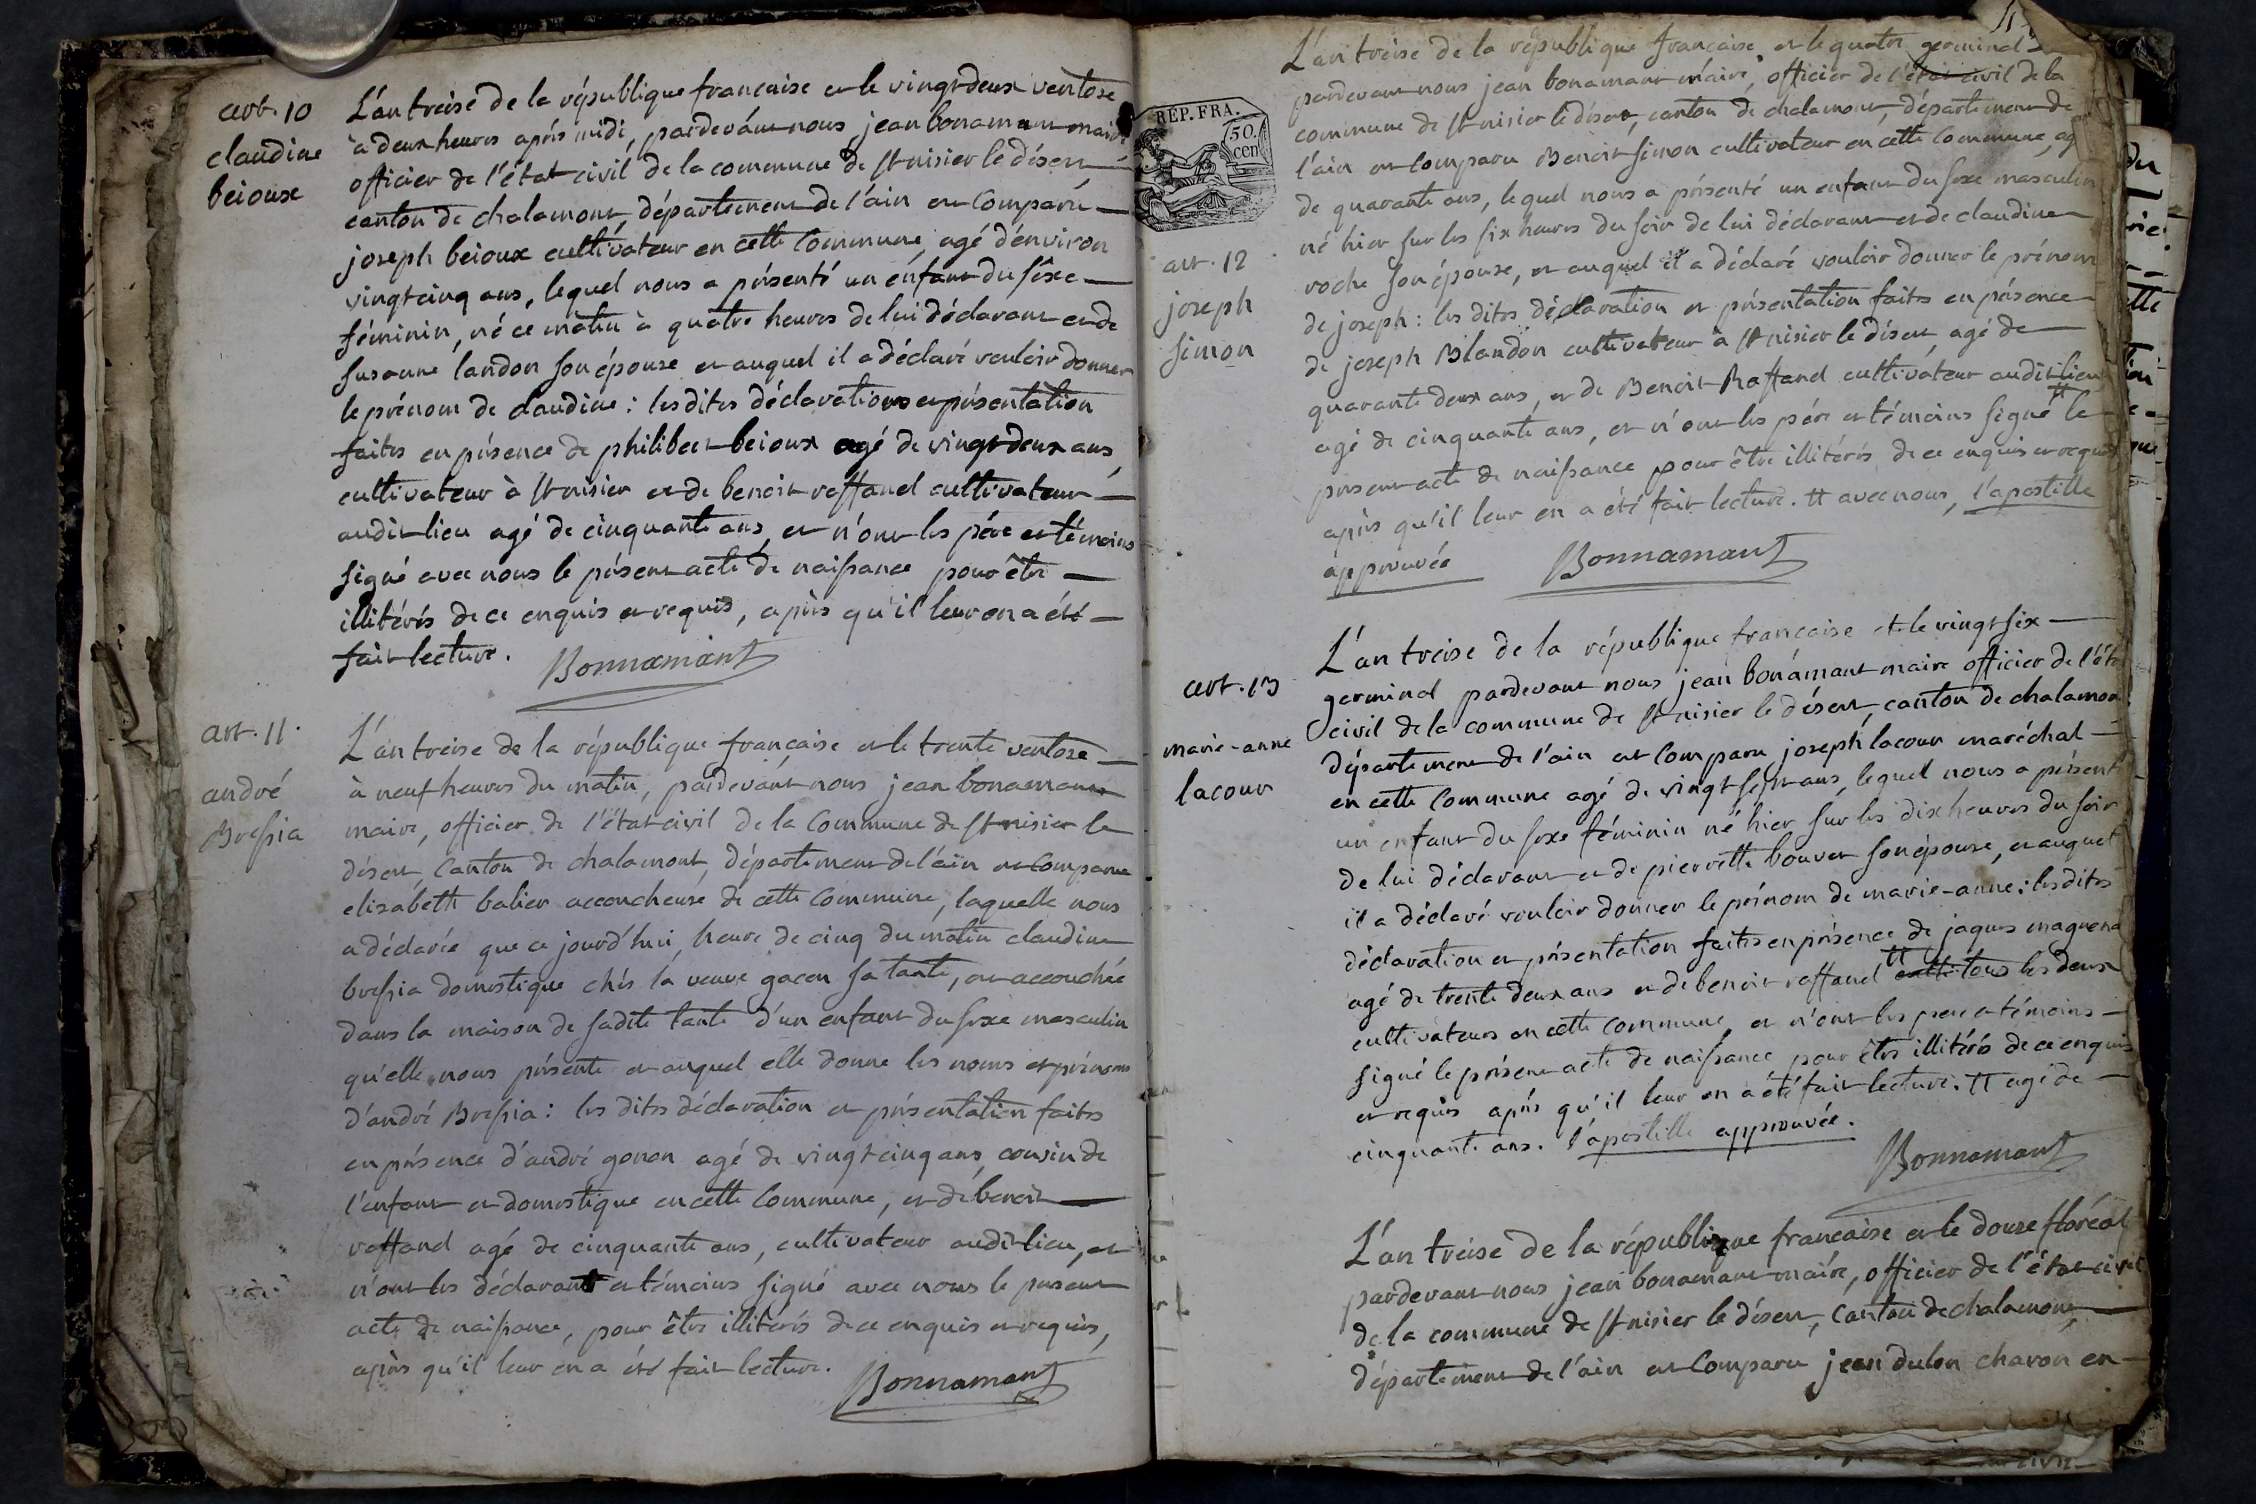 art. 10
claudine
beioux
L'an treise de la république francaise et le vingt deux ventose
à deux heures aprés midi, pardevant nous jean bonamant maire
officier de l'état civil de la commune de st nisier le désert
canton de chalamont, département de l'ain est comparu
joseph beioux cultivateur en cette commune, agé d'environ
vingt cinq ans, lequel nous a présenté un enfant du séxe
féminin, né ce matin à quatre heures de lui déclarant et de
susanne landon son épouse et auquel il a déclaré vouloir donner
le prénom de claudine : les dites déclarations et présentation
faites en présence de philibert beioux agé de vingt deux ans,
cultivateur à st nisier et de benoit raffand cultivateur
audit lieu agé de cinquante ans, et n'ont les pére et témoins
signé avec nous le présent acte de naissance pour être
illitérés de ce enquis et requis, aprés qu'il leur en a été
fait lecture.
Bonnamant
art. 11.
andré
Bressia
L'an treise de la république francaise et le trente ventose
à neuf heures du matin, pardevant nous jean bonamant
maire, officier de l'état civil de la commune de st nisier le
désert, canton de chalamont, département de l'ain est comparue
elisabeth balier accoucheuse de cette commune, laquelle nous
a déclarée que ce jourd'hui, heure de cinq du matin claudine
bressia domestique chés la veuve gacon sa tante, est accouchée
dans la maison de sadite tante d'un enfant du sexe masculin
qu'elle nous présente et auquel elle donne les noms et prénoms
d'andré Bressia : les dites déclaration et présentation faites
en présence d'andré gonon agé de vingt cinq ans, cousin de
l'enfant et domestique en cette commune, et de benoit
raffand agé de cinquante ans, cultivateur audit lieu, et
n'ont les déclarant et témoins signé avec nous le présent
acte de naissance, pour être illitérés de ce enquis et requis,
aprés qu'il leur en a été fait lecture.
Bonnamant
REP. FRA.
50
cen
art. 12
joseph
simon
L'an treise de la république francaise et le quatre germinal
pardevant nous jean bonamant maire, officier de l'état civil de la
commune de st nisier le désert, canton de chalamont, département de
l'ain est comparu Benoit simon cultivateur en cette commune, agé
de quarante ans, lequel nous a présenté un enfant du sexe masculin
né hier sur les six heures du soir de lui déclarant et de claudine
roche son épouse, et auquel il a déclaré vouloir donner le prénom
de joseph : les dites déclaration et présentation faites en présence
de joseph Blandon cultivateur à st nisier le désert, agé de
quarante deux ans, et de Benoit Raffand cultivateur audit lieu
agé de cinquante ans, et n'ont les pére et témoins signé tt le
present acte de naissance pour être illitérés de ce enquis et requis
aprés qu'il leur en a été fait lecture. tt avec nous, l'apostille
approuvée
Bonnamant
art. 13
marie-anne
lacour
L'an treise de la république francaise et le vingt six
germinal pardevant nous jean bonamant maire officier de l'état
civil de la commune de st nisier le désert, canton de chalamont
département de l'ain est comparu joseph lacour maréchal
en cette commune agé de vingt sept ans, lequel nous a présenté
un enfant du sexe féminin né hier sur les dix heures du soir
de lui déclarant et de pierrette bouver son épouse, et auquel
il a déclaré vouloir donner le prénom de marie-anne : les dites
déclaration et présentation faites en présence de jaques maguena
agé de trente deux ans et de benoit raffand tt tous les deux
cultivateurs en cette commune, et n'ont les pere et témoins
signé le présent acte de naissance pour êtrs illitérés de ce enquis
et requis aprés qu'il leur en a été fait lecture. tt agé de
cinquante ans. l'apostille approuvée.
Bonnamant
L'an treise de la république francaise et le douse floréal
pardevant nous jean bonamant maire, officier de l'état civil
de la commune de st nisier le désert, canton de chalamont,
département de l'ain est comparu jean dulon charon en